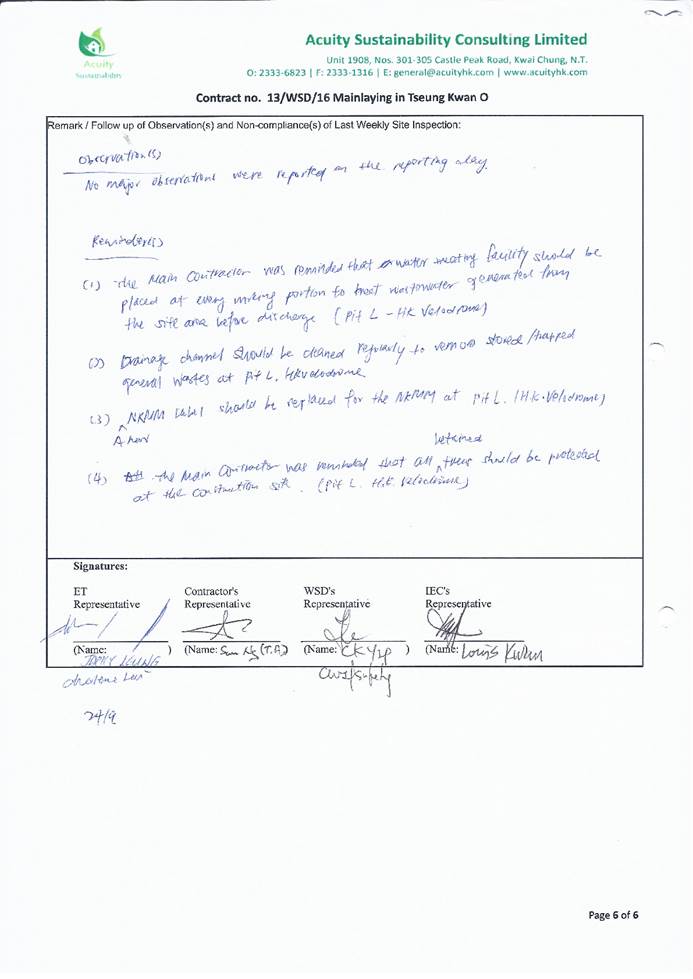 Acuity Sustainability Consulting Limited
Acuity
Sustainability
Unit 1908, Nos. 301-305 Castle Peak Road, Kwai Chung, N.T.
O: 2333-6823 | F: 2333-1316 | E: general@acuityhk.com | www.acuityhk.com
Contract no. 13/WSD/16 Mainlaying in Tseung Kwan O
Remark / Follow up of Observation(s) and Non-compliance(s) of Last Weekly Site Inspection:
Observation(s)
No major observations were reported on the reporting day.
Reminder(s)
(1) The Main Contractor was reminded that water treating facility should be
placed at every mixing portion to treat wastewater generated from
the site area before discharge (Pit L - HK Velodrome)
(2) Drainage channel should be cleaned regularly to remove stored/trapped
general wastes at Pit L, HK Velodrome
(3) NRMM label should be replaced for the NRMM at Pit L. (HK. Velodrome)
A new
retained
(4) the Main Contractor was reminded that all trees should be protected
at the construction site. (Pit L. H.K. Velodrome)
Signatures:
ET Contractor's WSD's IEC's
Representative Representative Representative Representative
(Name: ) (Name: Sun Ng (T.A)) (Name: CK Yip ) (Name: Louis Kwan
24/9
Page 6 of 6